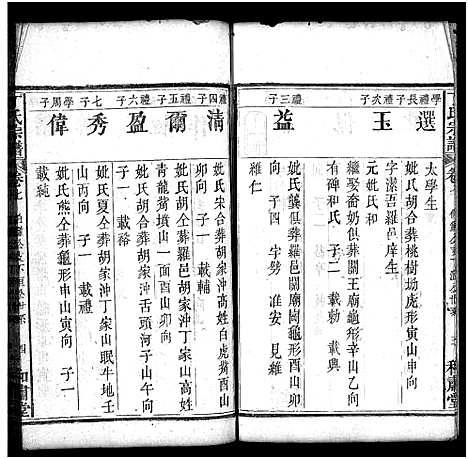 丁氏宗譜
卷七
學禮長子
選
太學生
字潔吾羅邑庠生
妣氏胡合葬桃樹坳虎形寅山
禮次子
玉
元妣氏和
繼娶喬奶俱葬關王廟龜形辛山乙
向 子二 載勑 載興
禮三子
益
妣氏龔俱葬羅邑關廟岡龜形酉山卯
向 子四 字芳 維安 見雍
雍仁
和肅堂
禮四子
清
妣氏宋合葬胡家沖高姓白虎觜酉山
卯向 子一 載輔
禮五子
爾
妣氏胡仝葬羅邑胡家沖丁家山高姓
青龍觜墳山一面酉山卯向 子一
禮六子
盈
妣氏胡合葬胡家沖舌頭河子山午向
子一 載裕
七子
秀
妣氏夏仝葬胡家沖丁家山眠牛地壬
山丙向 子一 載禮
學周子
偉
妣氏熊仝葬龜形申山寅向 子一
載純
丁氏宗譜
卷七
四
和肅堂